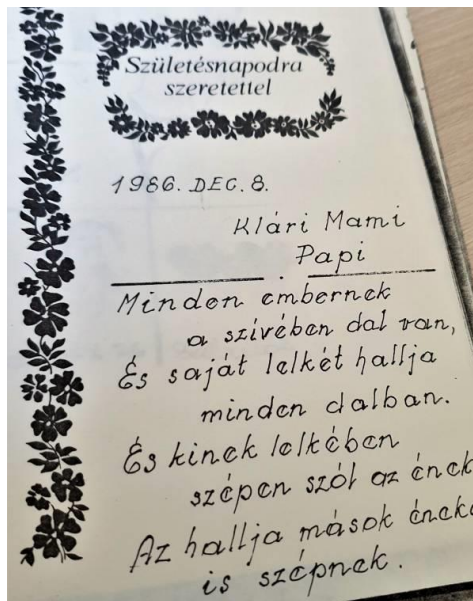 Születésnapodra
szeretettel
1986. DEC. 8.
Klári Mami
Papi
Minden embernek
a szívében dal van,
És saját lelkét hallja
minden dalban.
És kinek lelkében
szépen szól az ének
Az hallja mások énekét
is szépnek.